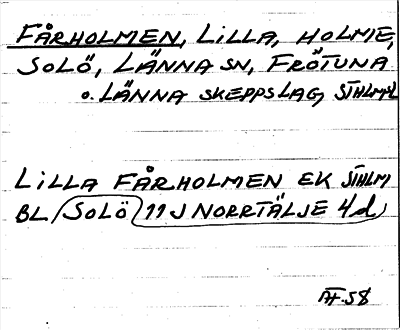 FÅRHOLMEN, LILLA, HOLME,
SOLÖ, LÄNNA SN, FRÖTUNA
o. LÄNNA SKEPPSLAG, STHLM:L
LILLA FÅRHOLMEN EK STHLM
BL SOLÖ 11 J NORRTÄLJE 4d
AF. 58